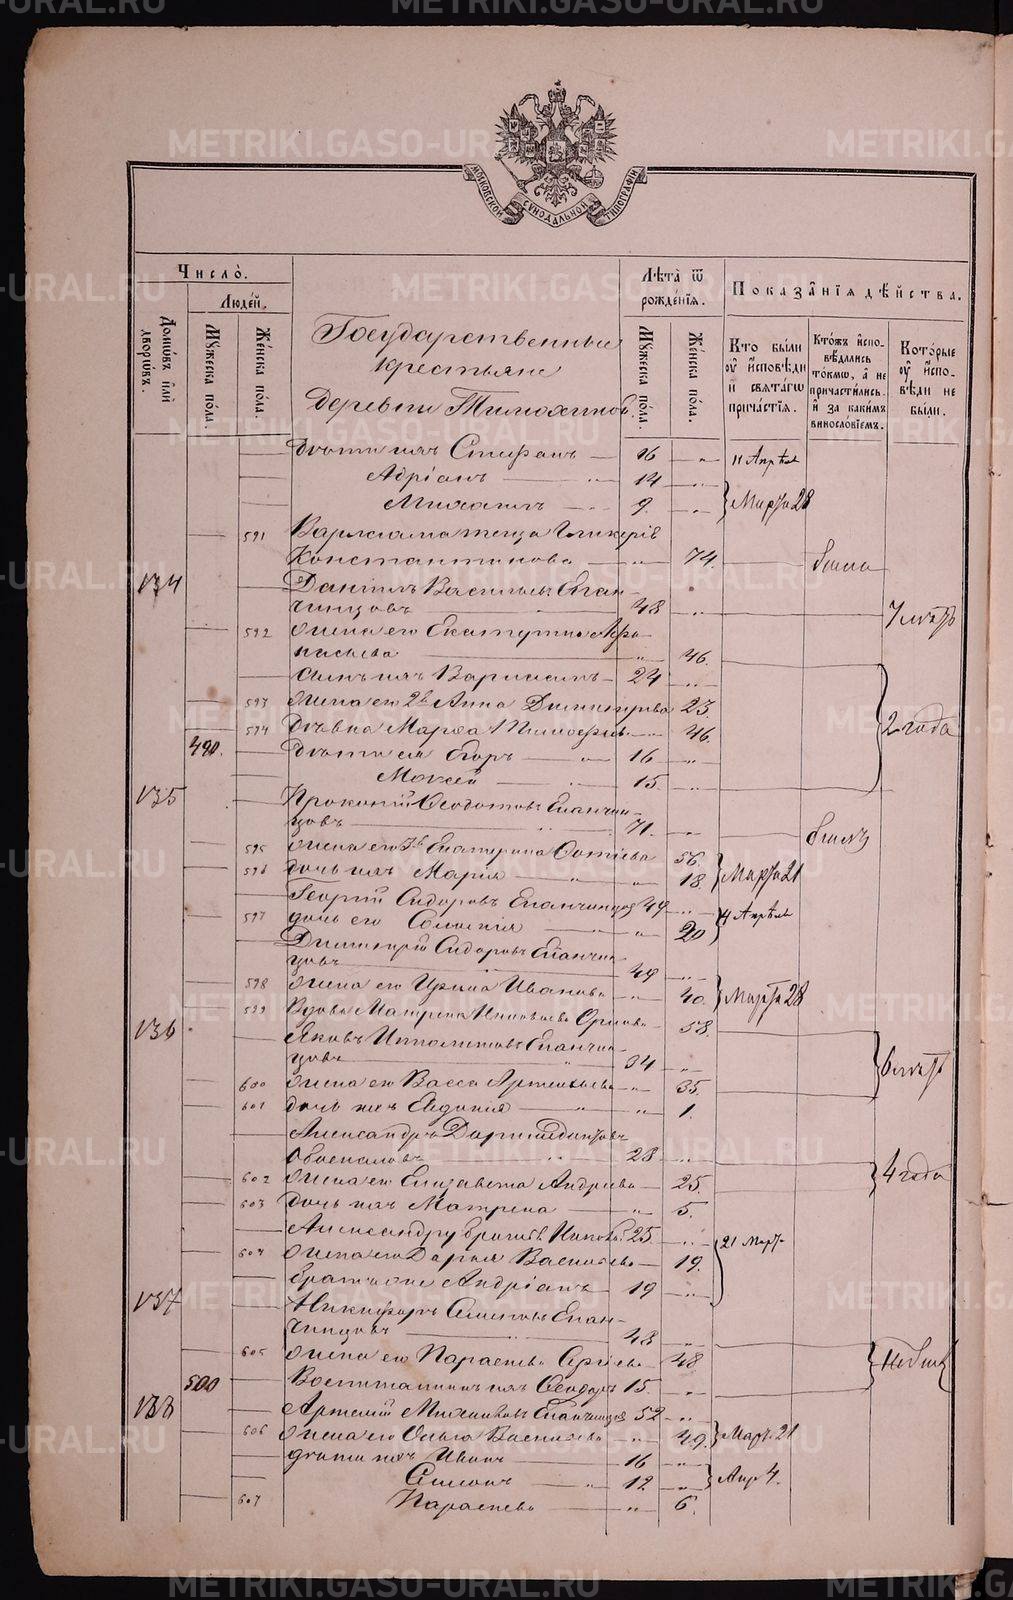 METRIKI.GASO-URAL.RU
МОСКОВСКОЙ СѴНОДАЛЬНОЙ ТИПОГРАФІИ
Число̀.
Людéй.
Домѡ́въ и҆лѝ дворѡ́въ.
Мꙋ́жеска по́ла.
Же́нска по́ла.
Государственные
крестьяне
Деревни Тимохиной
Лѣта̀ ѿ рожде́нїѧ.
Мꙋ́жеска по́ла.
Же́нска по́ла.
Показа̑нїѧ дѣ́йства.
Кто̀ бы́ли оу҆ и҆сповѣди и҆ свѧта́гѡ прича́стїѧ.
Кто́жъ и҆сповѣ́дались то́кмѡ, а҆ не причасти́лись. и҆ за каки́мъ винословїемъ.
Кото́рые оу҆ и҆сповѣди не бы́ли.
Дѣти ихъ Стефанъ — 16 — „ 11 Апрѣля
Адріанъ — „ 14 — „
Михаилъ — 9. — „ Марта 28
591 Варлаама теща Гликерія
Константинова — „ 74. была
134 Даніилъ Васильевъ Епан-
чинцовъ „ 48 — „ 7 лѣтъ
592 жена его Екатерина Афа-
насьева — „ 46.
сынъ ихъ Варлаамъ — 24 — „
593 жена его 2я Анна Димитріева 23. 2 года
594 Вдова Марѳа Тимоѳеева — „ 46.
490. Дѣти ея Егоръ — „ 16 — „
Моксей — „ 15. — „
135 Прокопій Ѳеодотовъ Епанчин-
цовъ — „ 71. — „ былъ
595 жена его 3я Екатерина Фотіева 56.
596 дочь ихъ Марія — „ 18. Марта 21
Георгій Сидоровъ Епанчинцовъ 49 — „ 4 Апрѣля
597 дочь его Соломія — „ 20
Димитрій Сидоровъ Епанчин-
цовъ — „ 44 — „
598 жена его Ирина Иванова — „ 40. Марта 28
599 Вдова Матрена Николаева Орлова — 58.
136 Яковъ Ипполитовъ Епанчин-
цовъ — 34 — „ 6 лѣтъ
600 жена его Васса Артемьева — „ 35.
601 дочь ихъ Евдокія — „ 1.
Александръ
28 — „
602 жена его Елизавета Андреева — 25. 4 года
603 дочь ихъ Матрена — „ 5.
Александру братъ 25 — „ 21 Март
604 жена его Дарья Васильева — 19.
братъ Андріанъ — 19 — „
137 Никифоръ Семеновъ Епан-
чинцовъ — „ 48 — „
605 жена его Параскева Сергіева — 48
500 Воспитанникъ ихъ Ѳеодоръ 15. — „
138 Артемій Михайловъ Епанчинцовъ 52 — „
606 жена его Ольга Васильева — „ 49. Март. 21
дѣти ихъ Иванъ — 16 — „
Симонъ — „ 12 — „ Апр 4.
607 Параскева — „ 6.